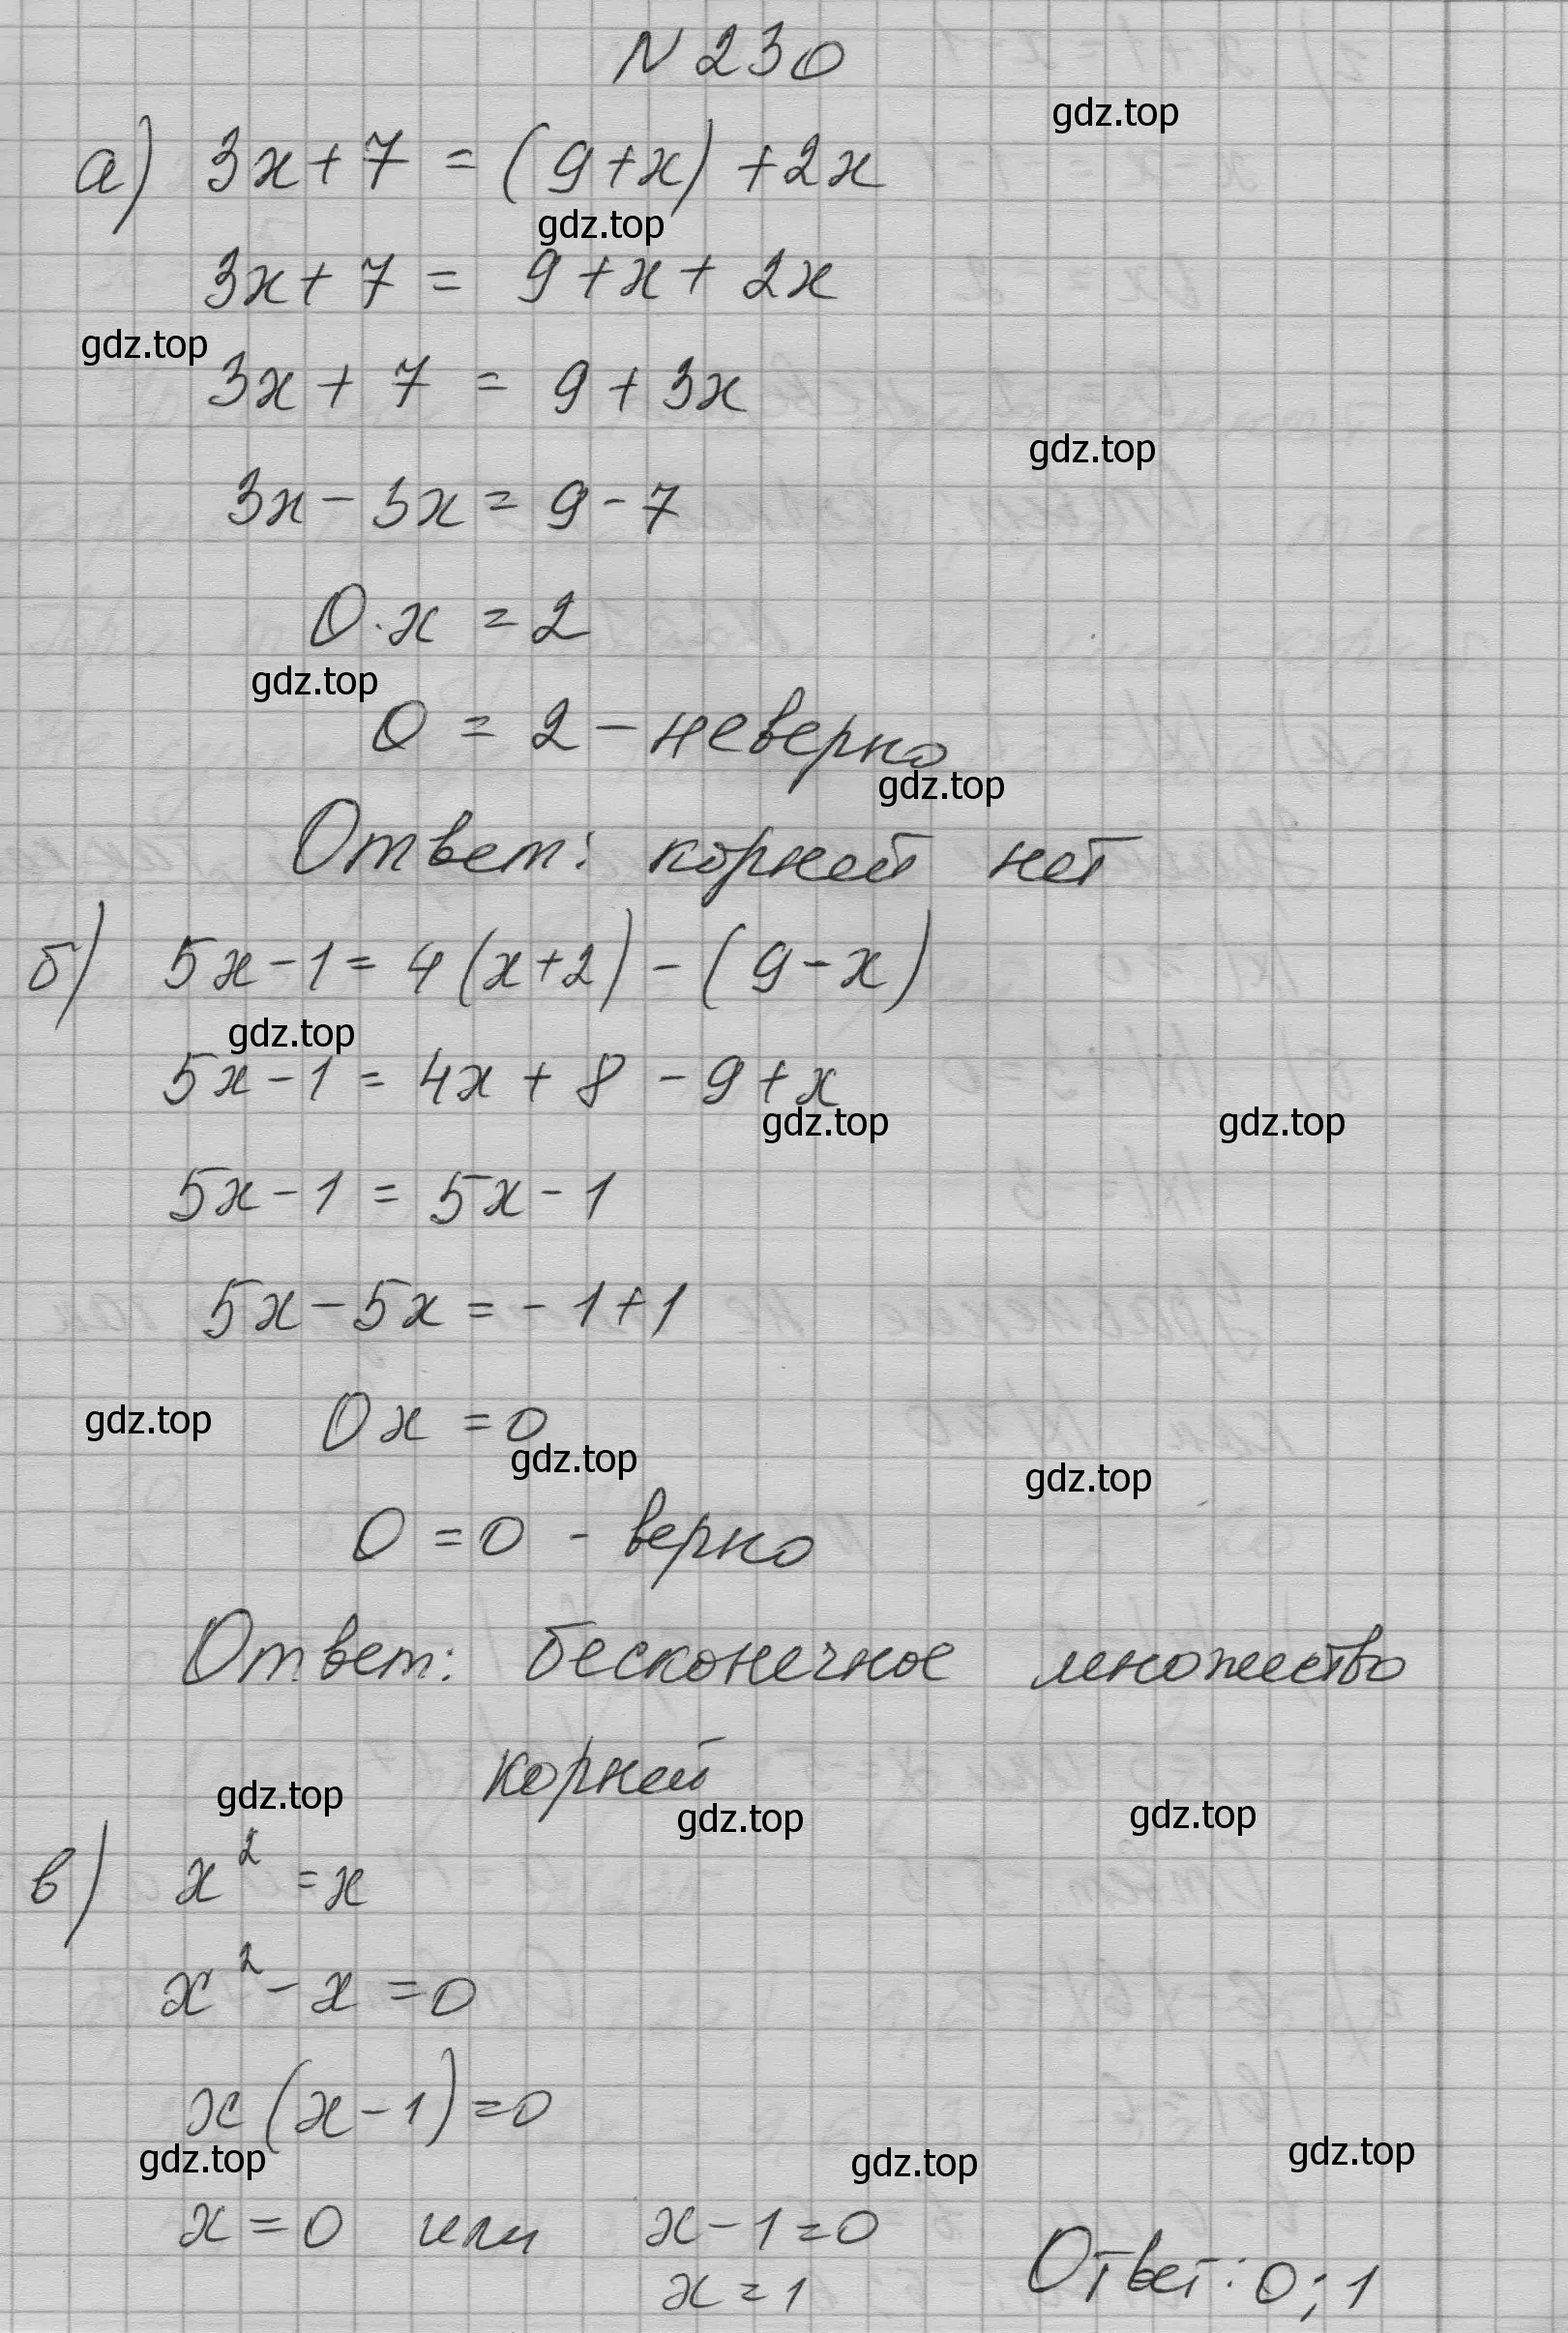 N 230
gdz.top
а) 3x + 7 = (9 + x) + 2x
gdz.top
3x + 7 = 9 + x + 2x
gdz.top
3x + 7 = 9 + 3x
gdz.top
3x - 3x = 9 - 7
0 · x = 2
gdz.top
0 = 2 - неверно
gdz.top
Ответ: корней нет
б) 5x - 1 = 4(x + 2) - (9 - x)
gdz.top
5x - 1 = 4x + 8 - 9 + x
gdz.top gdz.top
5x - 1 = 5x - 1
5x - 5x = - 1 + 1
gdz.top 0x = 0
gdz.top gdz.top
0 = 0 - верно
Ответ: бесконечное множество
корней
gdz.top gdz.top gdz.top
в) x² = x
x² - x = 0
x(x - 1) = 0
gdz.top gdz.top gdz.top
x = 0 или x - 1 = 0
x = 1 Ответ: 0; 1